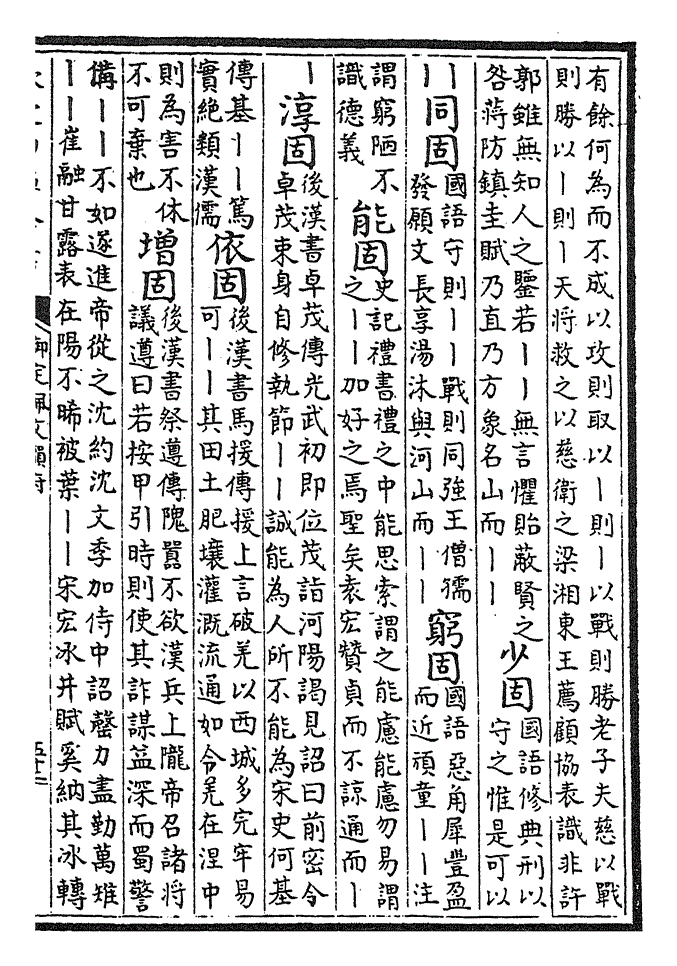 有餘何為而不成以攻則取以丨則丨以戰則勝老子夫慈以戰
則勝以丨則丨天將救之以慈衛之梁湘東王薦顧協表識非許
郭雖無知人之鑒若丨丨無言懼貽蔽賢之
咎蔣防鎮圭賦乃直乃方象名山而丨丨
少固
國語修典刑以
守之惟是可以
丨丨
同固
國語守則丨丨戰則同強王僧孺
發願文長享湯沐與河山而丨丨
窮固
國語惡角犀豐盈
而近頑童丨丨注
謂窮陋不
識德義
能固
史記禮書禮之中能思索謂之能慮能慮勿易謂
之丨丨加好之焉聖矣袁宏贊貞而不諒通而丨
丨
淳固
後漢書卓茂傳光武初即位茂詣河陽謁見詔曰前密令
卓茂束身自修執節丨丨誠能為人所不能為宋史何基
傳基丨丨篤
實絕類漢儒
依固
後漢書馬援傳援上言破羌以西城多完牢易
可丨丨其田土肥壤灌溉流通如令羌在湟中
則為害不休
不可棄也
增固
後漢書祭遵傳隗囂不欲漢兵上隴帝召諸將
議遵曰若按甲引時則使其詐謀益深而蜀警
備丨丨不如遂進帝從之沈約沈文季加侍中詔罄力盡勤萬雉
丨丨崔融甘露表在陽不晞被葉丨丨宋宏冰井賦奚納其冰轉
御定佩文韻府